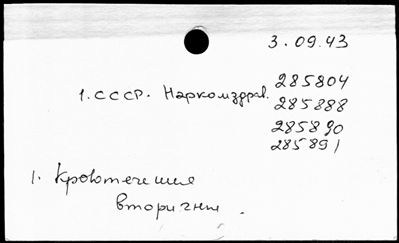 3.09.43
1. СССР. Наркомздрав. 285804
285888
285890
285891
1. Кровотечения
вторичные.